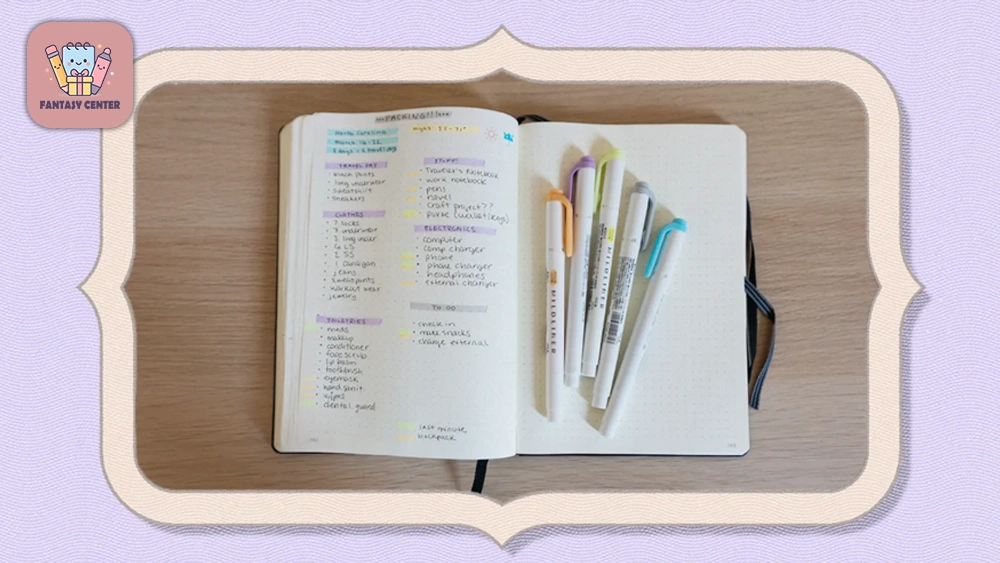 FANTASY CENTER
PACKING!!
North Carolina
TRAVEL DAY
• black pants
• long underwear
• sweatshirt
• sneakers
CLOTHES
• 7 socks
• 7 underwear
• 1 cardigan
• jeans
• sweatpants
• workout wear
• jewelry
TOILETRIES
• meds
• makeup
• conditioner
• face scrub
• lip balm
• toothbrush
• eyemask
• hand sanit
• wipes
• dental guard
STUFF
• Traveler's Notebook
• work notebook
• pens
• novel
• craft project??
• purse (wallet/keys)
ELECTRONICS
• computer
• comp charger
• phone
• phone charger
• headphones
• external charger
TO DO
• check in
• make snacks
• charge external
last minute
backpack
MILDLINER
MILDLINER